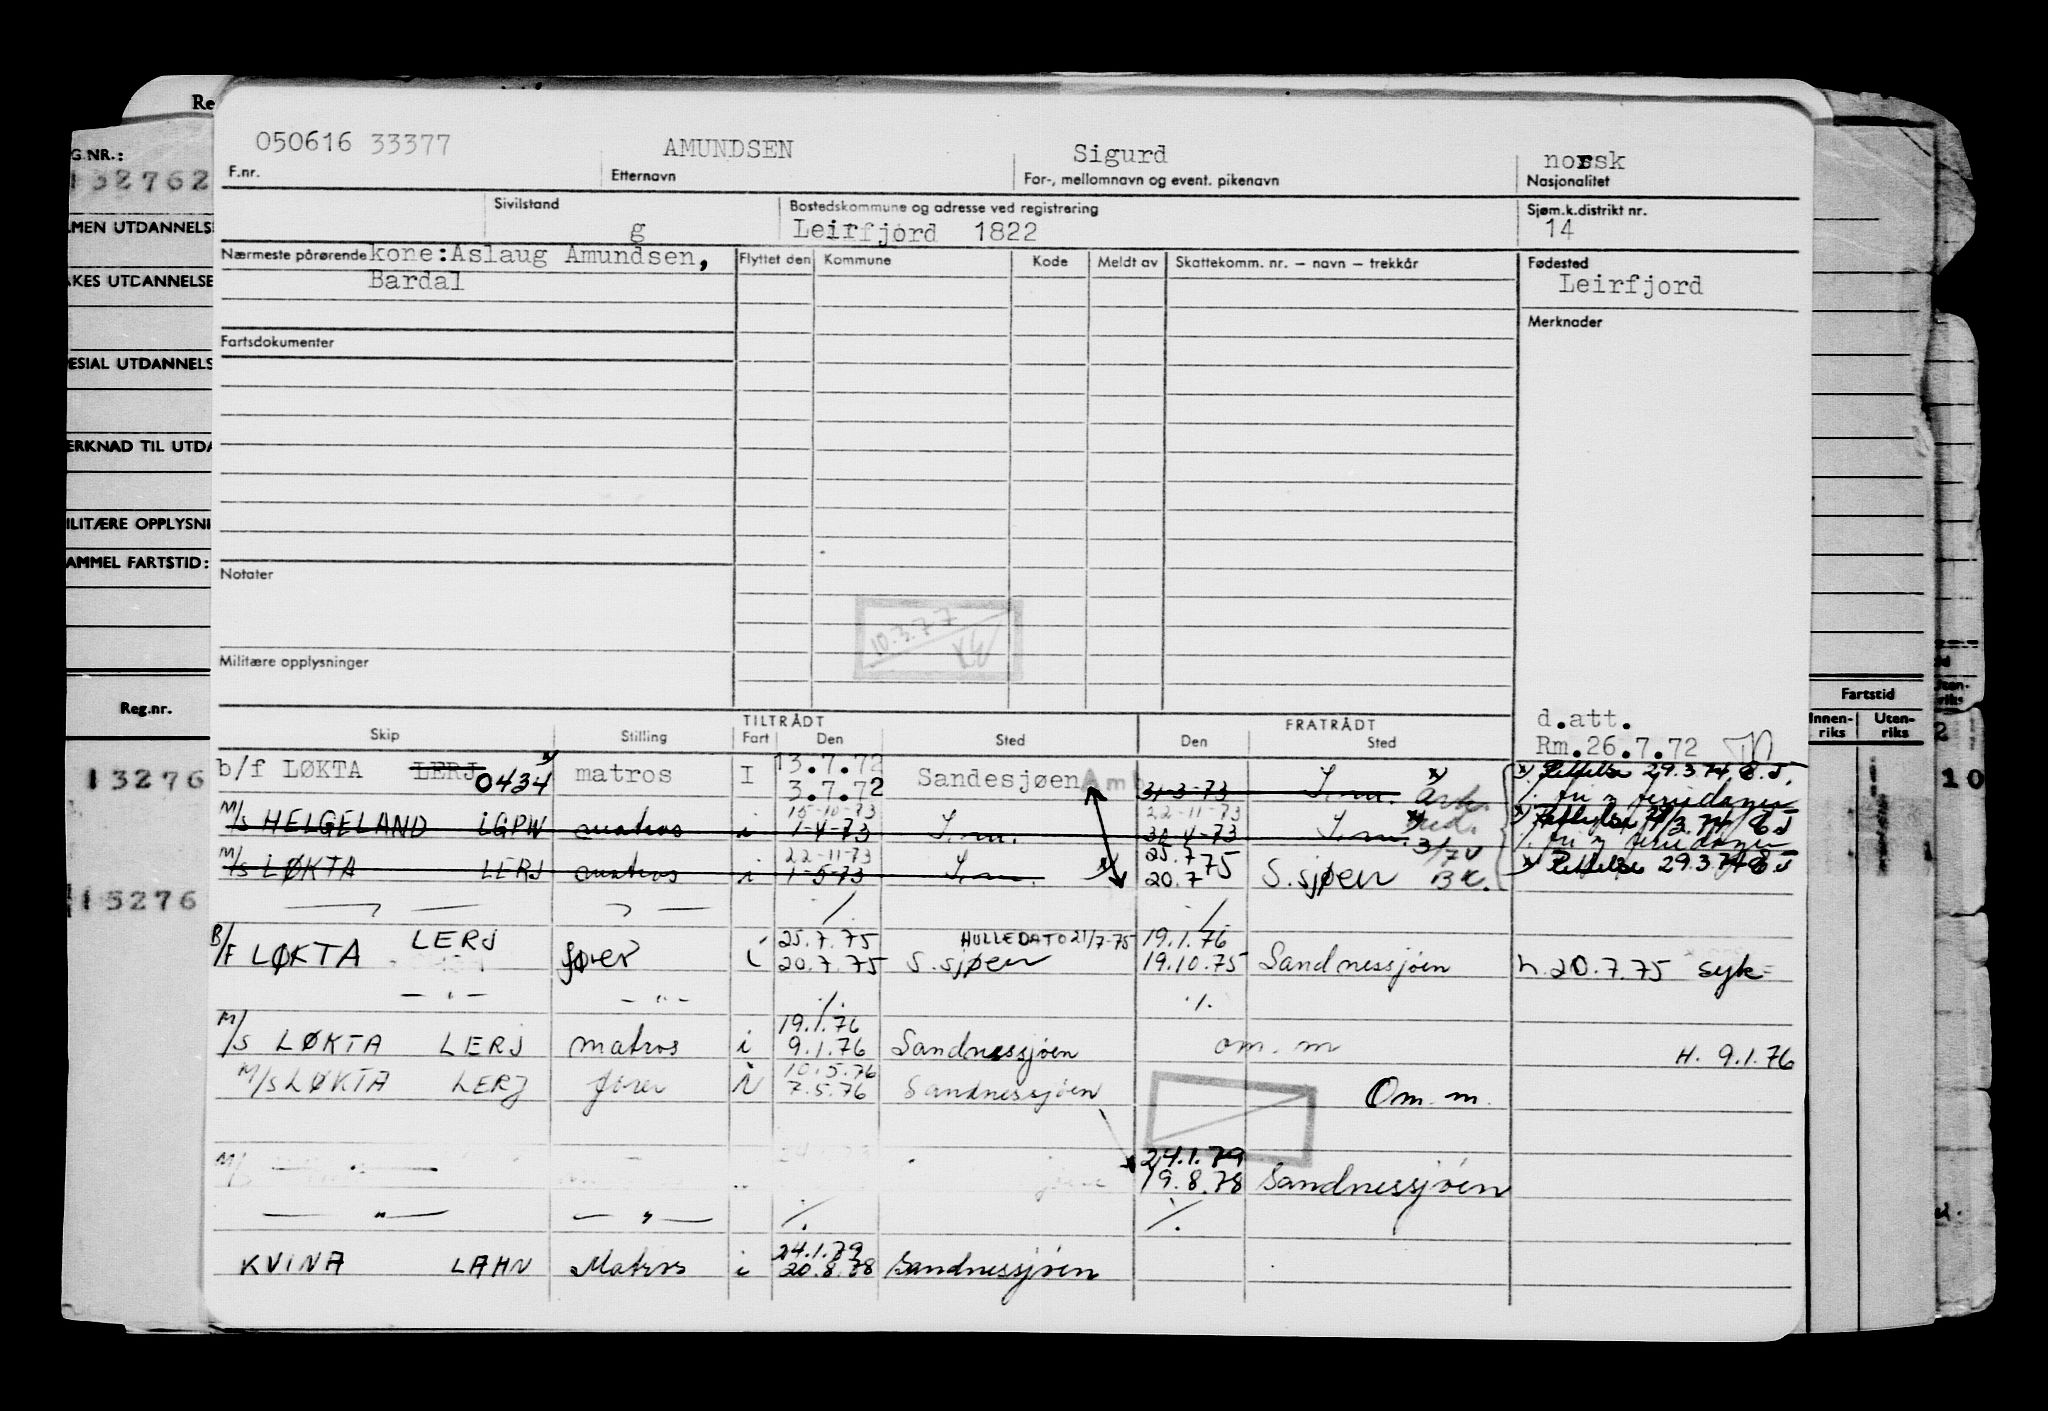 Re
G.NR.:
132762
LMEN UTDANNELS
AKES UTDANNELSE
ESIAL UTDANNELS
ERKNAD TIL UTDA
ILITÆRE OPPLYSNI
AMMEL FARTSTID:
Reg.nr.
13276
13276
050616 33377 AMUNDSEN Sigurd norsk
F.nr. Etternavn For-, mellomnavn og event. pikenavn Nasjonalitet
Sivilstand g Bostedskommune og adresse ved registrering Sjøm.k.distrikt nr.
Leirfjord 1822 14
Nærmeste pårørende kone:Aslaug Amundsen, Flyttet den Kommune Kode Meldt av Skattekomm. nr. – navn – trekkår Fødested
Bardal Leirfjord
Merknader
Fartsdokumenter
Notater
10.3.77
Militære opplysninger
TILTRÅDT FRATRÅDT d.att.
Skip Stilling Fart Den Sted Den Sted Rm.26.7.72
13.7.72
b/f LØKTA LERJ 0434 matros I 3.7.72 Sandesjøen 31-3-73 Rettelse 29.3.74
15-10-73 22-11-73
M/s HELGELAND LGPW matros i 1-4-73 30-4-73
22-11-73 25.7.75
M/s LØKTA LERJ matros i 1-5-73 20.7 S.sjøen Rettelse 29.3.74
25.7.75 HULLEDATO 21/7-75 19.1.76
B/F LØKTA LERJ fører i 20.7.75 S.sjøen 19.10.75 Sandnessjøen h.20.7.75 syk
— " — — " — ./. ./.
19.1.76
M/s LØKTA LERJ matros i 9.1.76 Sandnessjøen om.m H. 9.1.76
10.5.76
M/s LØKTA LERJ fører i 7.5.76 Sandnessjøen Om.m.
24.1.79
M/s 19.8.78 Sandnessjøen
— " — — " — ./. ./.
24.1.79
KVINA LAHN Matros i 20.8.78 Sandnessjøen
Fartstid
Innen-riks Uten-riks
2
10